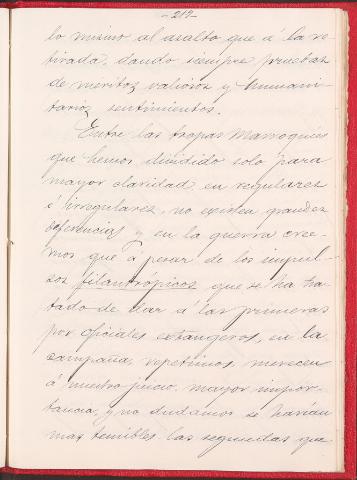 -217-
lo mismo al asalto que á la re-
tirada, dando siempre pruebas
de méritos valiosos y humani-
tarios sentimientos.
Entre las tropas Marroquies
que hemos dividido solo para
mayor claridad en regulares
é irregulares, no existen grandes
diferencias y en la guerra cree-
mos que á pesar de los impul-
sos filantrópicos que se ha tra-
tado de dar á las primeras
por oficiales extangeros, en la
campaña, repetimos, merecen
á nuestro juicio, mayor impor-
tancia, y no dudamos se harían
mas temibles las segundas que